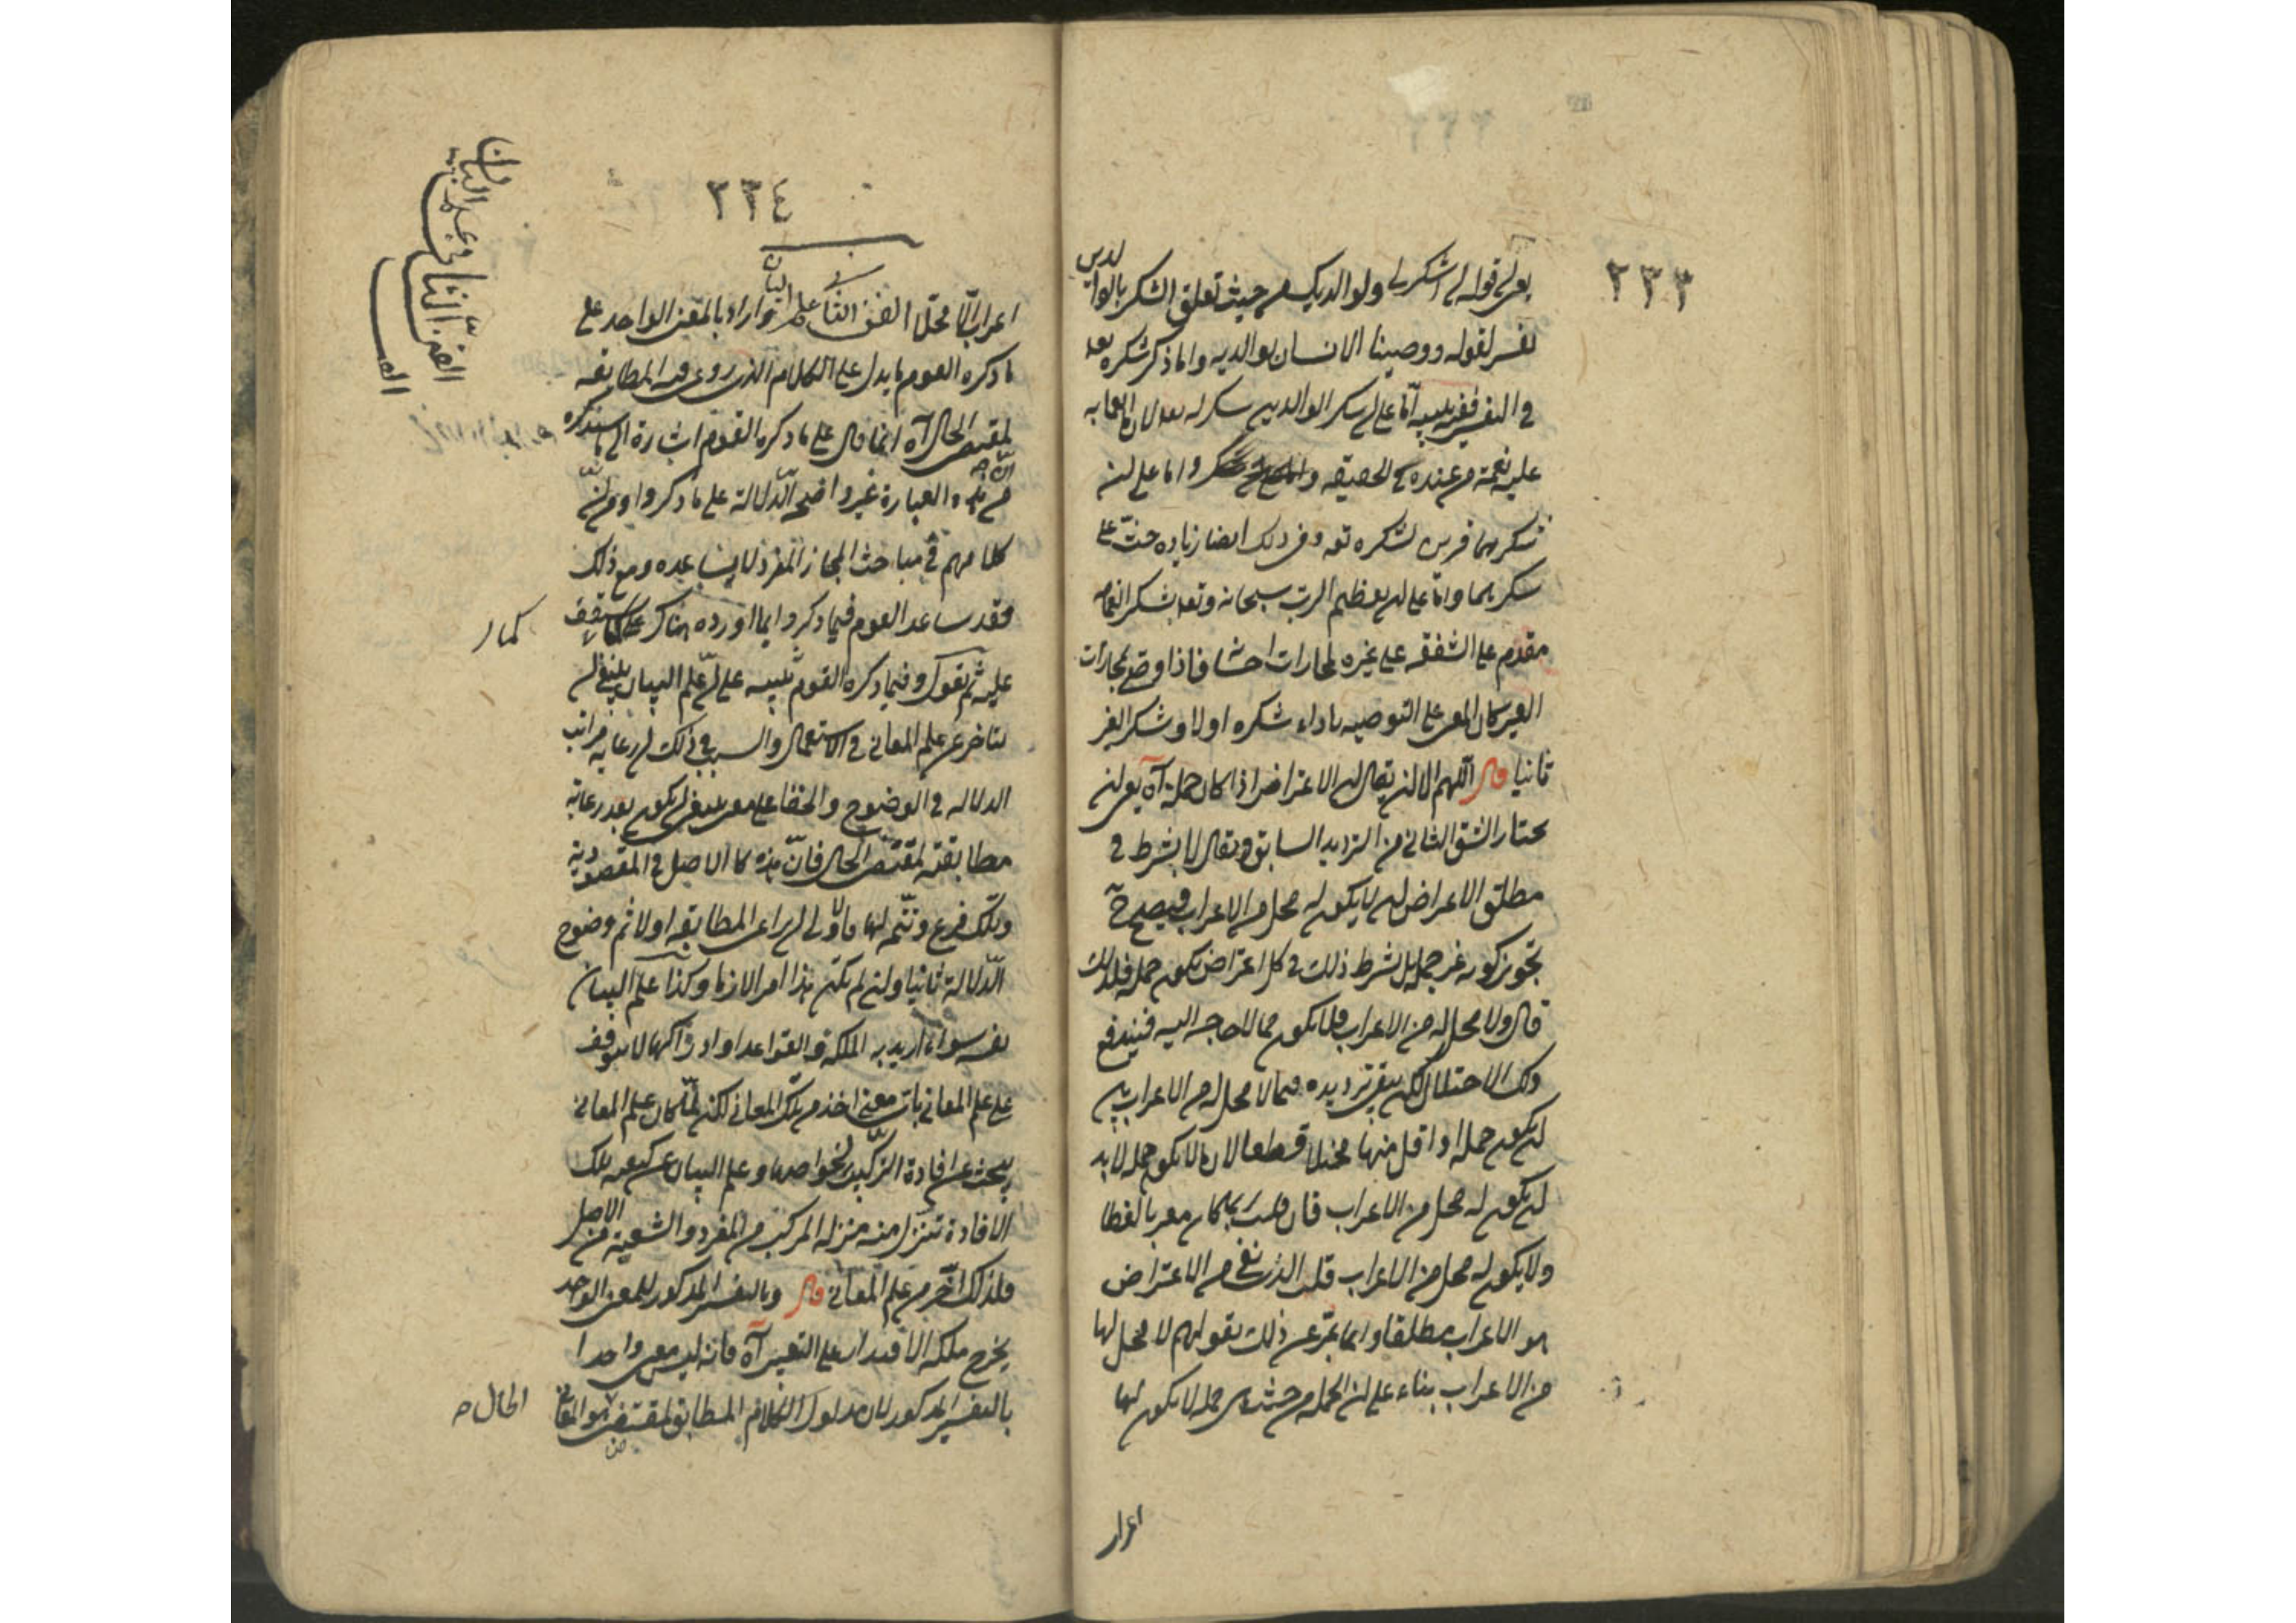 ٢٣٣
يعني قوله ان اشكر لي ولوالديك من حيث تعلق الشكر بالوالدين
تفسير لقوله ووصينا الانسان بوالديه وانما ذكر شكره تعه
في التفسير ففيه تنبيه اما على ان شكر الوالدين شكر له تعه لان
عليه نعمة من عنده في الحقيقه واما على ان
شكرهما قرين لشكره تعه وفي ذلك ايضا زيادة حث على
شكرهما واما على ان تعظيم الرب سبحانه وتعه بشكر انعامه
مقدم على الشفقه على غيره فاذا وصى بمجازات
الغير كان المعنى على التوصيه باداء شكره اولا وشكر الغير
ثانيا قال اللهم الا ان يقال ان الاعتراض اذا كان جملة آه يعني ان
يختار الشق الثاني من الترديد السابق ويقال لا يشترط في
مطلق الاعتراض ان لا يكون له محل من الاعراب فيصح ح
تجويز كونه غير جملة بل نشرط ذلك في كل اعتراض يكون جملة فلذلك
قال ولا محل له من الاعراب فلا يكون مما لا حاجة اليه فيندفع
ذلك الاحتمال لكن يبقى ترديده فيما لا محل له من الاعراب بين
ان يكون جملة او اقل منها مختلا قطعا لان ما لا يكون جملة لا بد
ان يكون له محل من الاعراب فان قلت ربما كان معربا لفظا
ولا يكون له محل من الاعراب قلت الذي نفي من الاعتراض
هو الاعراب مطلقا وانما عبر عن ذلك بقولهم لا محل لها
من الاعراب بناء على ان الجملة من حيث هي جملة لا يكون لها
اعرا
٢٣٤
اعراب الا محلا الفن الثاني علم البيان واراد بالمعنى الواحد على
ما ذكره القوم ما يدل عليه الكلام الذي روعي فيه المطابقه
لمقتضى الحال آه انما قال على ما ذكره القوم اشارة الى ما سنذكره
من ان هذه العبارة غير واضح الدلالة على ما ذكروا ومن ان
كلامهم في مباحث المجاز المفرد لا يساعده ومع ذلك
فقد ساعد القوم فيما ذكروا بما اورده هناك كما ستقف
عليه ثم نقول وفيما ذكره القوم تنبيه على ان علم البيان ينبغي ان
يتاخر عن علم المعاني في الاستعمال والسبب في ذلك ان رعاية مراتب
الدلاله في الوضوح والخفا على معنى ينبغي ان يكون بعد رعاية
مطابقته لمقتضى الحال فان هذه كالاصل في المقصودية
وتلك فرع وتتمه لها فالاولى ان يراعى المطابقه اولا ثم وضوح
الدلالة ثانيا وان لم يكن هذا امرا لازما وكذا علم البيان
نفسه سواء اريد به الملكة او القواعد او ادراكها لا يتوقف
على علم المعاني باي معنى اخذ من تلك المعاني لكن لما كان علم المعاني
يبحث عن افادة التركيب لخواصها وعلم البيان عن كيفية تلك
الافادة تنزل منه منزله المركب من المفرد والشعبة من الاصل
فلذلك اخر من علم المعاني قال وبالتفسير المذكور للمعنى الواحد
يخرج ملكة الاقتدار على التعبير آه فانه ليس معنى واحدا
بالتفسير المذكور لان مدلول الكلام المطابق لمقتضى هو المعاني
الحال صح
الفن الثاني في علم البيان